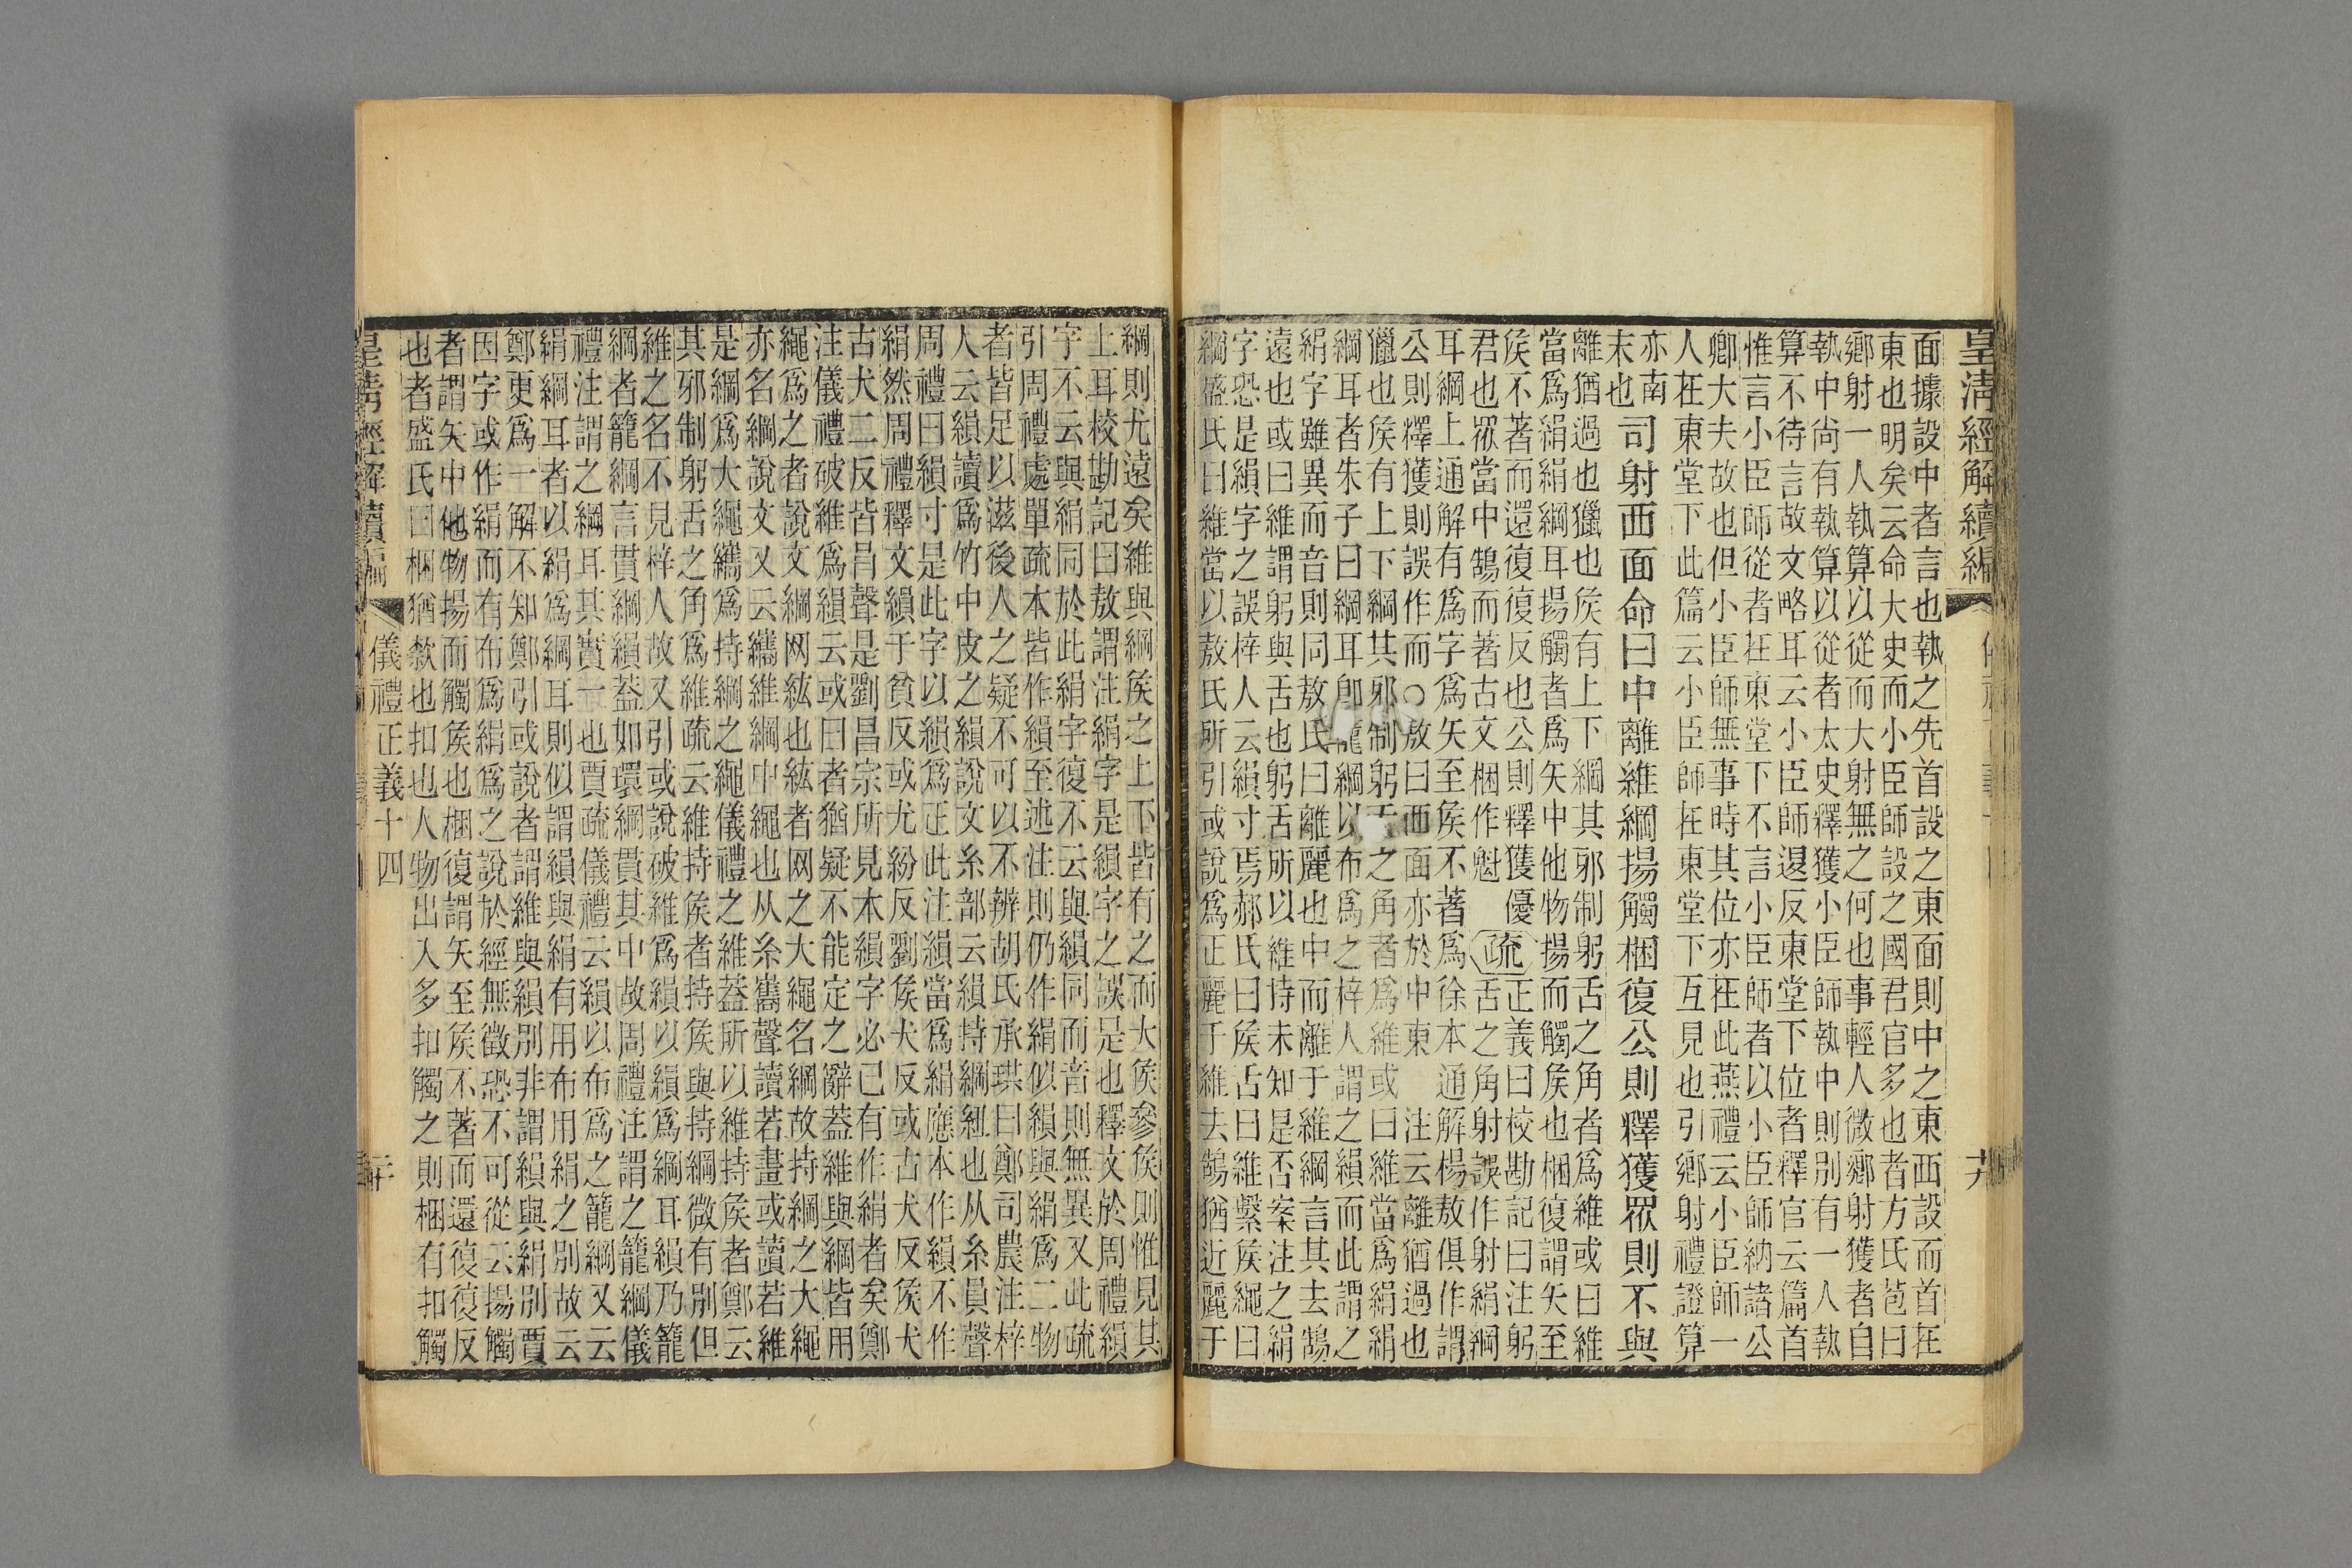 皇清經解續編
面據設中者言也執之先首設之東面則中之東西設而首在
東也明矣云命大史而小臣師設之國君官多也者方氏苞曰
鄉射一人執算以從而大射無之何也事輕人微鄉射獲者自
執中尚有執算以從者太史釋獲小臣師執中則別有一人執
算不待言故文略耳云小臣師退反東堂下位者釋官云篇首
惟言小臣師從者在東堂下不言小臣師者以小臣師納諸公
卿大夫故也但小臣師無事時其位亦在此燕禮云小臣師一
人在東堂下此篇云小臣師在東堂下互見也引鄉射禮證算
亦南
末也
司射西面命曰中離維綱揚觸梱復公則釋獲眾則不與
離猶過也獵也矦有上下綱其邪制躬舌之角者為維或曰維
當為絹絹綱耳揚觸者為矢中他物揚而觸矦也梱復謂矢至
矦不著而還復復反也公則釋獲優
君也眾當中鵠而著古文梱作魁
疏
正義曰校勘記曰注躬
舌之角射誤作射絹綱
耳綱上通解有為字為矢至矦不著為徐本通解楊敖俱作謂
公則釋獲則誤作而○敖曰西面亦於中東 注云離猶過也
獵也矦有上下綱其邪制躬舌之角者為維或曰維當為絹絹
綱耳者朱子曰綱耳即籠綱以布為之梓人謂之縜而此謂之
絹字雖異而音則同敖氏曰離麗也中而離于維綱言其去鵠
遠也或曰維謂躬與舌也躬舌所以維持未知是否案注之絹
字恐是縜字之誤梓人云縜寸焉郝氏曰矦舌曰維繫矦繩曰
綱盛氏曰維當以敖氏所引或說為正麗于維去鵠猶近麗于
綱則尤遠矣維與綱矦之上下皆有之而大矦參矦則惟見其
上耳校勘記曰敖謂注絹字是縜字之誤是也釋文於周禮縜
字不云與絹同於此絹字復不云與縜同而音則無異又此疏
引周禮處單疏本皆作縜至述注則仍作絹似縜與絹為二物
者皆足以滋後人之疑不可以不辨胡氏承珙曰鄭司農注梓
人云縜讀為竹中皮之縜說文糸部云縜持綱紐也从糸員聲
周禮曰縜寸是此字以縜為正此注縜當為絹應本作縜不作
絹然周禮釋文縜于貧反或尤紛反劉矦犬反或古犬反矦犬
古犬二反皆呂聲是劉昌宗所見本縜字必已有作絹者矣鄭
注儀禮破維為縜云或曰者猶疑不能定之辭蓋維與綱皆用
繩為之者說文綱网紘也紘者网之大繩名綱故持綱之大繩
亦名綱說文又云纗維綱中繩也从糸巂聲讀若畫或讀若維
是綱為大繩纗為持綱之繩儀禮之維蓋所以維持矦者鄭云
其邪制躬舌之角為維疏云維持矦者持矦與持綱微有別但
維之名不見梓人故又引或說破維為縜以縜為綱耳縜乃籠
綱者籠綱言貫綱縜蓋如環綱貫其中故周禮注謂之籠綱儀
禮注謂之綱耳其實一也賈疏儀禮云縜以布為之籠綱又云
絹綱耳者以絹為綱耳則似謂縜與絹有用布用絹之別故云
鄭更為一解不知鄭引或說者謂維與縜別非謂縜與絹別賈
因字或作絹而有布為絹為之說於經無徵恐不可從云揚觸
者謂矢中他物揚而觸矦也梱復謂矢至矦不著而還復復反
也者盛氏曰梱猶欸也扣也人物出入多扣觸之則梱有扣觸
皇清經解續編
儀禮正義十四